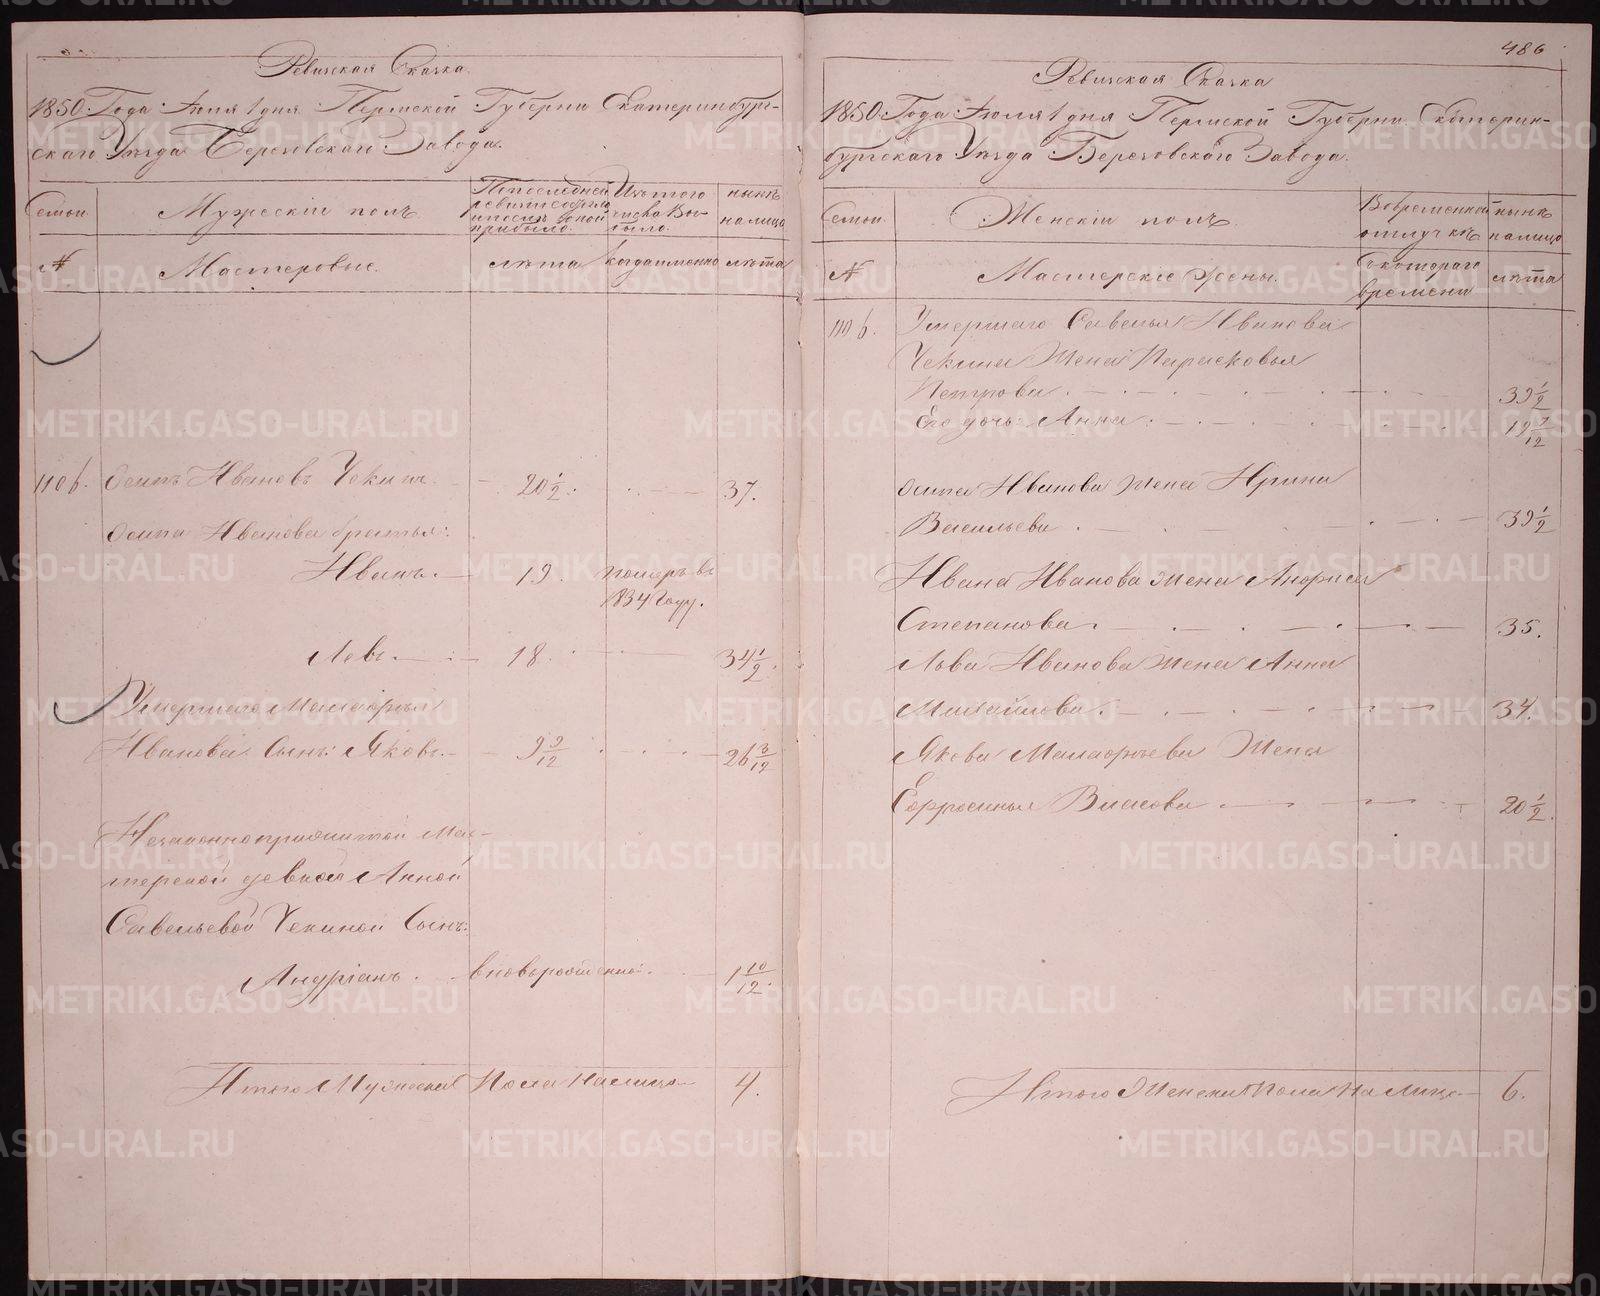 486
Ревизская Сказка
1850 Года Июля 1 дня Пермской Губернии Екатеринбург-
скаго Уезда Березовскаго Завода.
Семьи
Мужескій полъ
По последней ревизіи состояло и после оной прибыло.
Изъ того числа Вы-было.
ныне на лицо
№
Мастеровые.
лета
когда именно
лета
110 б. Осипъ Ивановъ Чекинъ. 20 1/2. 37.
Осипа Иванова братья:
Иванъ. 19. померъ въ
1834 Году.
Левъ. 18. 34 1/2.
Умершаго Малафья
Иванова Сынъ: Яковъ. 9 9/12 26 3/12
Незаконноприжитой Мас-
терской девкой Анной
Савельевой Чекиной Сынъ:
Андріанъ. вноворожденной. 1 10/12.
Итого Мужеска Пола На лицо 4.
Ревизская Сказка
1850 Года Июля 1 дня Пермской Губерни Екатерин-
бургскаго Уезда Березовскаго Завода.
Семьи
Женскій полъ.
Во временной отлучке
ныне на лицо
№
Мастерскіе жены.
съ котораго времени
лета
110 б. Умершаго Савелья Иванова
Чекина Жена Парасковья
Петрова. 39 1/2
Его дочь: Анна. 19 7/12
Осипа Иванова жена Ирина
Васильева. 39 1/2
Ивана Иванова жена Анфиса
Степанова. 35.
Льва Иванова жена Анна
Михайлова. 34.
Якова Малафьева Жена
Ефросинья Власова 20 1/2.
Итого Женска Пола На Лицо 6.
METRIKI.GASO-URAL.RU